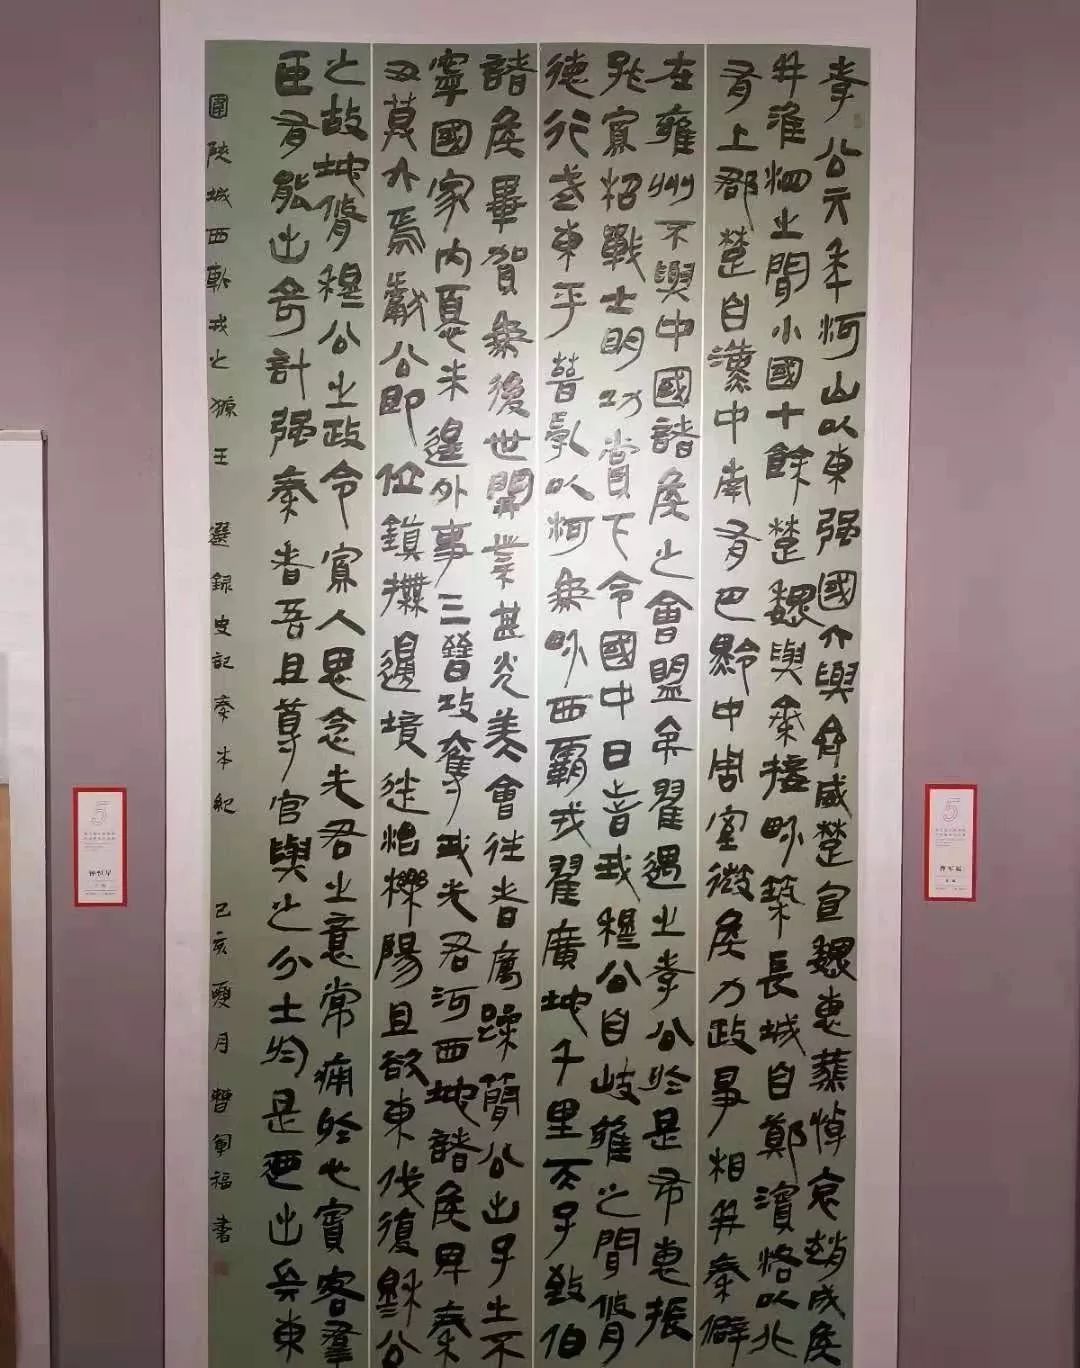 孝公元年河山以東强國六與齊威楚宣魏惠燕悼哀趙成侯
并淮泗之間小國十餘楚魏與秦接界築長城自鄭濱洛以北
有上郡楚自漢中南有巴黔中周室微侯力政爭相并秦僻
在雍州不與中國諸侯之會盟夷翟遇之孝公於是布惠振
孤寡招戰士明功賞下令國中曰昔我穆公自岐雍之間修
德行武東平晉亂以河為界西霸戎翟廣地千里天子致伯
諸侯畢賀為後世開業甚光美會往者厲躁簡公出子之不
寧國家內憂未遑外事三晉攻奪我先君河西地諸侯卑秦
丑莫大焉獻公即位鎮撫邊境徙治櫟陽且欲東伐復繆公
之故地脩穆公之政令寡人思念先君之意常痛於心賓客羣
臣有能出奇計强秦者吾且尊官與之分土於是廼出兵東
圍陝城西斬戎之獂王 選録史記秦本紀 己亥夏月 曹軍福書
5
5
曹军福